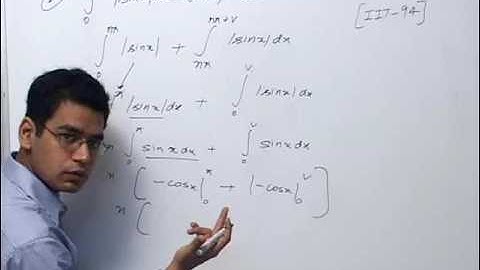 [IIT-94]
∫₀^{nπ} |sinx| + ∫_{nπ}^{nπ+v} |sinx| dx
|sinx| dx + ∫₀^v |sinx| dx
n ∫₀^π sinx dx + ∫₀^v sinx dx
n ( -cosx|₀^π + |-cosx|₀^v )
n (